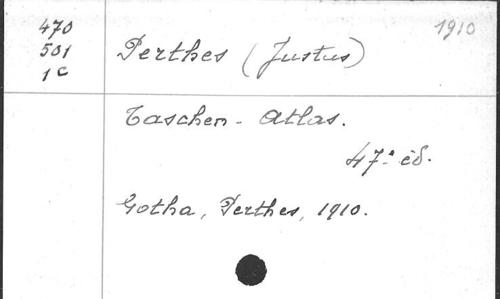 470
501
1c
Perthes (Justus)
1910
Taschen-Atlas.
47e éd.
Gotha, Perthes, 1910.